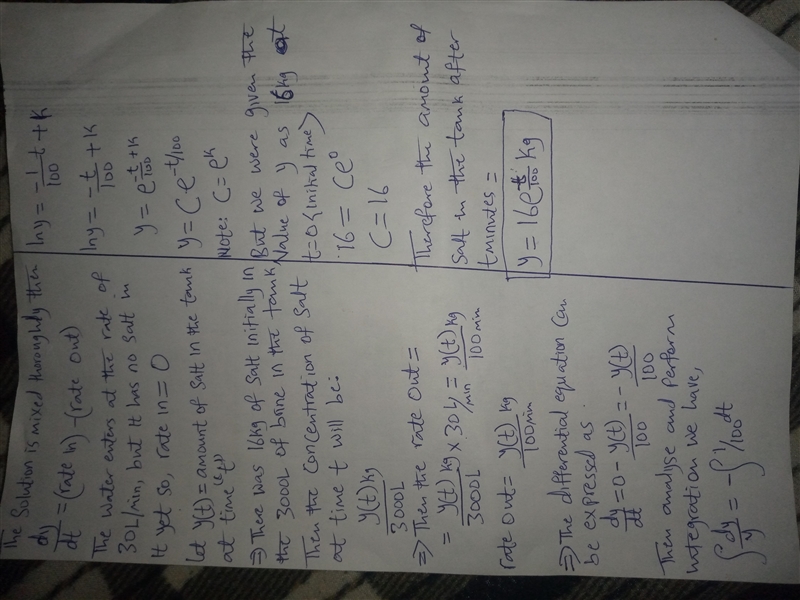 The Solution is mixed thoroughly then
dy/dt = (rate in) - (rate out)
The water enters at the rate of
30L/min, but it has no salt in
it yet so, rate in = 0
Let y(t) = amount of salt in the tank
at time (t)
⇒ There was 16kg of salt initially in
the 3000L of brine in the tank
Then the concentration of salt
at time t will be:
y(t) kg / 3000L
⇒ Then the rate out =
= y(t) kg / 3000L × 30 L/min = y(t) kg / 100 min
rate out = y(t) kg / 100 min
⇒ The differential equation can
be expressed as:
dy/dt = 0 - y(t)/100 = - y(t)/100
Then analyse and perform
integration we have,
∫ dy/y = - ∫ 1/100 dt
ln y = -1/100 t + K
ln y = -t/100 + K
y = e^(-t/100 + K)
y = C e^(-t/100)
Note: C = e^K
But we were given the
Value of y as 16kg at
t=0 {initial time}
∴ 16 = Ce^0
C = 16
Therefore the amount of
salt in the tank after
t minutes =
y = 16e^(-t/100) kg